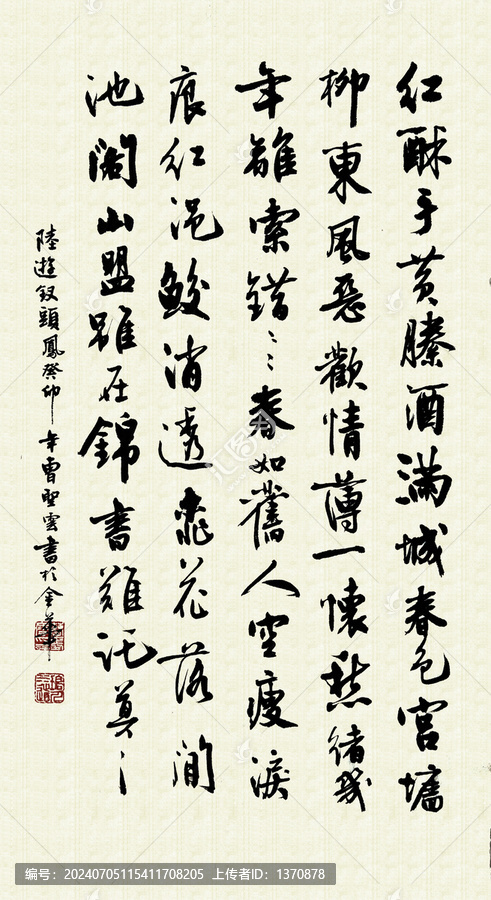 紅酥手黄縢酒滿城春色宫墻
柳東風惡歡情薄一懷愁緒幾
年離索錯〻〻春如舊人空瘦淚
痕紅浥鮫消透桃花落閒
池閣山盟雖在錦書難託莫〻〻
陸遊釵頭鳳癸卯年曹聖雲書於金華
编号：20240705115411708205 上传者ID：1370878